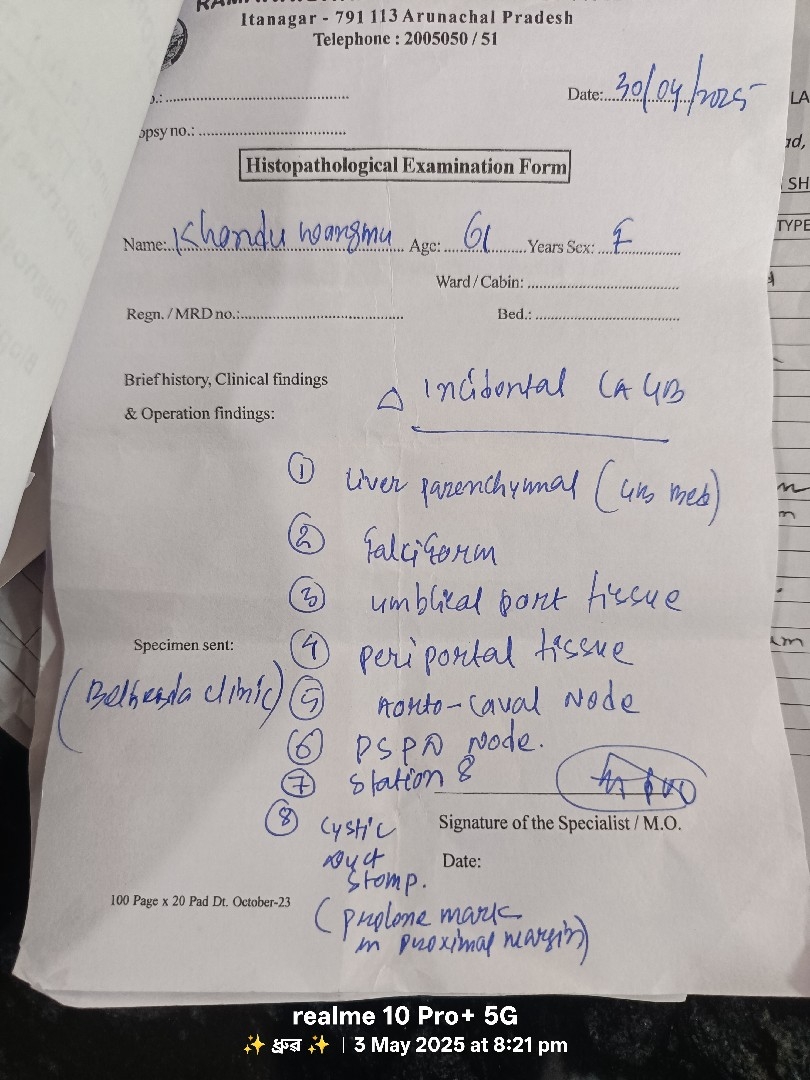 Itanagar - 791 113 Arunachal Pradesh
Telephone : 2005050 / 51
Date: 30/04/2025
opsy no.:
Histopathological Examination Form
Name: Khandu Age: 61 Years Sex: F
Ward / Cabin:
Regn. / MRD no.:
Bed.:
Brief history, Clinical findings
& Operation findings:
△ incidental CA GB
① Liver parenchymal (GB Bed)
② falciform
③ umblical port tissue
Specimen sent:
④ periportal tissue
(Bethesda clinic)
⑤ Aorto-caval Node
⑥ Node.
⑦ Station 8
Signature of the Specialist / M.O.
⑧ Cystic
Duct
Stomp.
Date:
100 Page x 20 Pad Dt. October-23
(prolene mark
in proximal margin)
LA
SH
TYPE
realme 10 Pro+ 5G
✨ ধ্রুব ✨ | 3 May 2025 at 8:21 pm